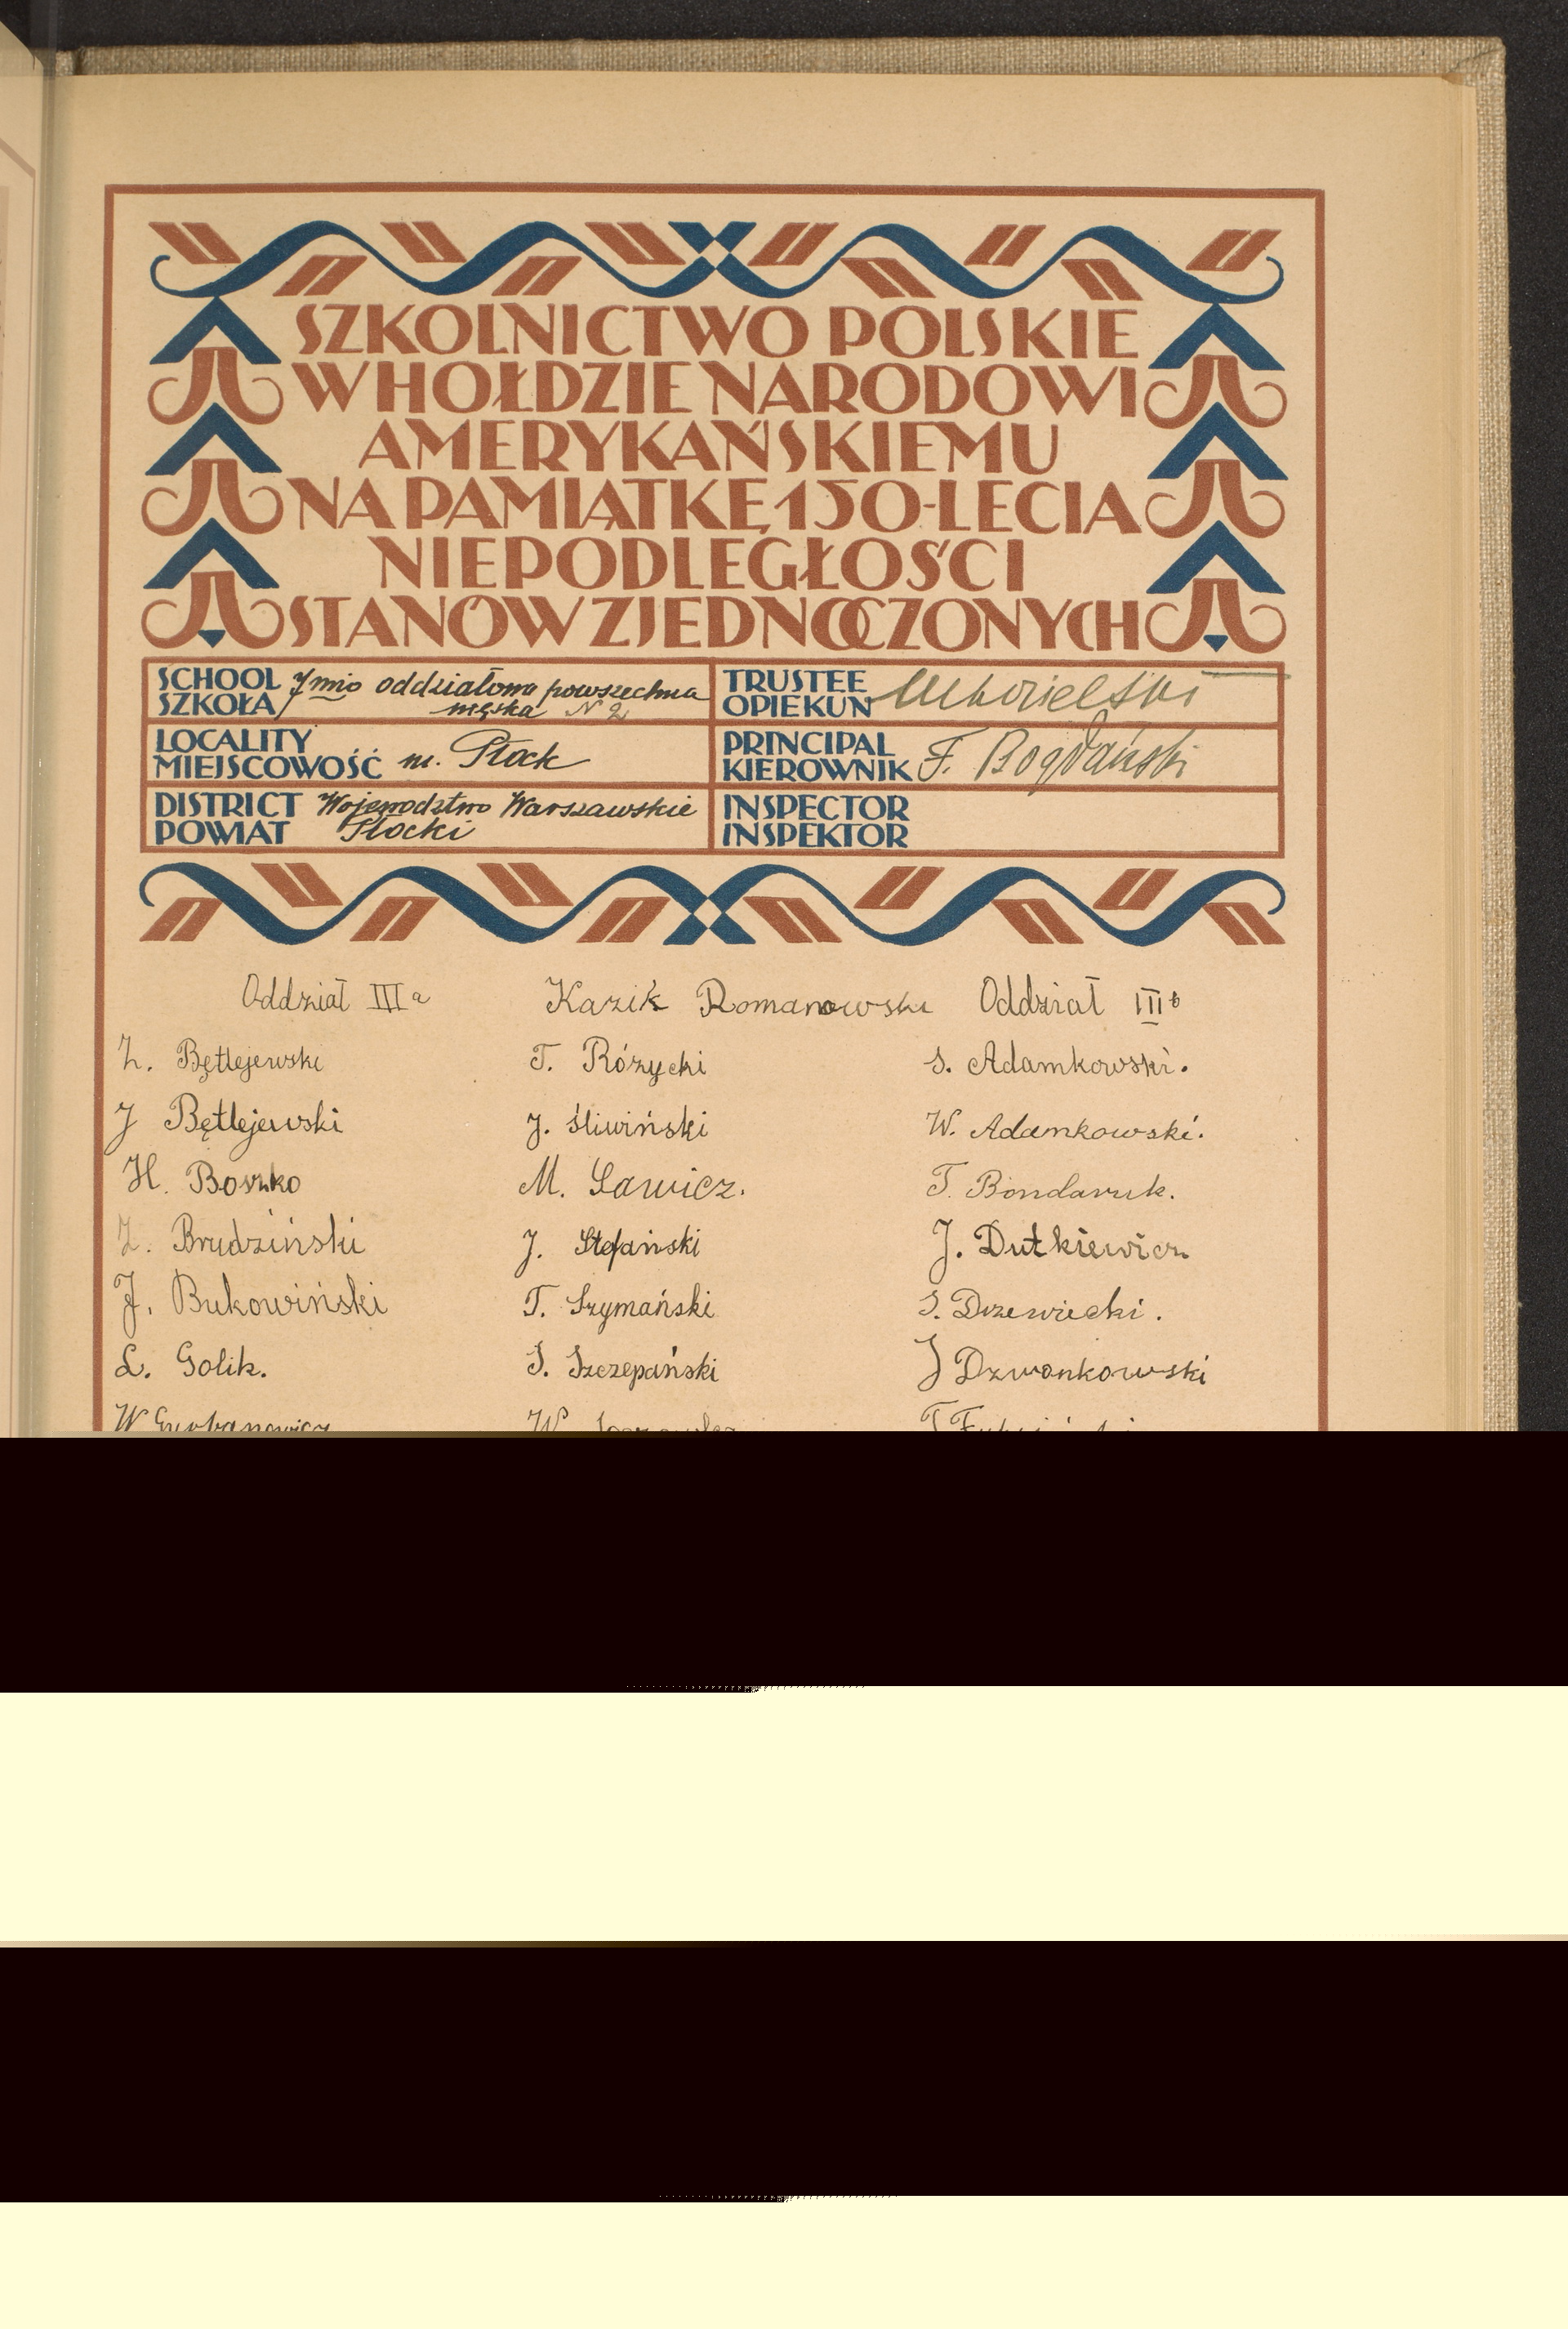 SZKOLNICTWO POLSKIE
W HOŁDZIE NARODOWI
AMERYKAŃSKIEMU
NA PAMIĄTKĘ 150-LECIA
NIEPODLEGŁOŚCI
STANÓW ZJEDNOCZONYCH
SCHOOL
SZKOŁA
7mio oddziałowa powszechna
męska N 2
TRUSTEE
OPIEKUN
LOCALITY
MIEJSCOWOŚĆ
m. Płock
PRINCIPAL
KIEROWNIK
F. Bogdański
DISTRICT
POWIAT
Województwo Warszawskie
Płocki
INSPECTOR
INSPEKTOR
Oddział III a
Z. Bętlejewski
J Bętlejewski
H. Boszko
Z. Brudziński
J. Bukowiński
L. Golik.
W
Kazik Romanowski
T. Różycki
J. Śliwiński
M. Sawicz.
J. Stefański
T. Szymański
S. Szczepański
W.
Oddział III b
S. Adamkowski.
W. Adamkowski.
T. Bondaruk.
J. Dutkiewicz
S. Drzewiecki.
J Dzwonkowski
T